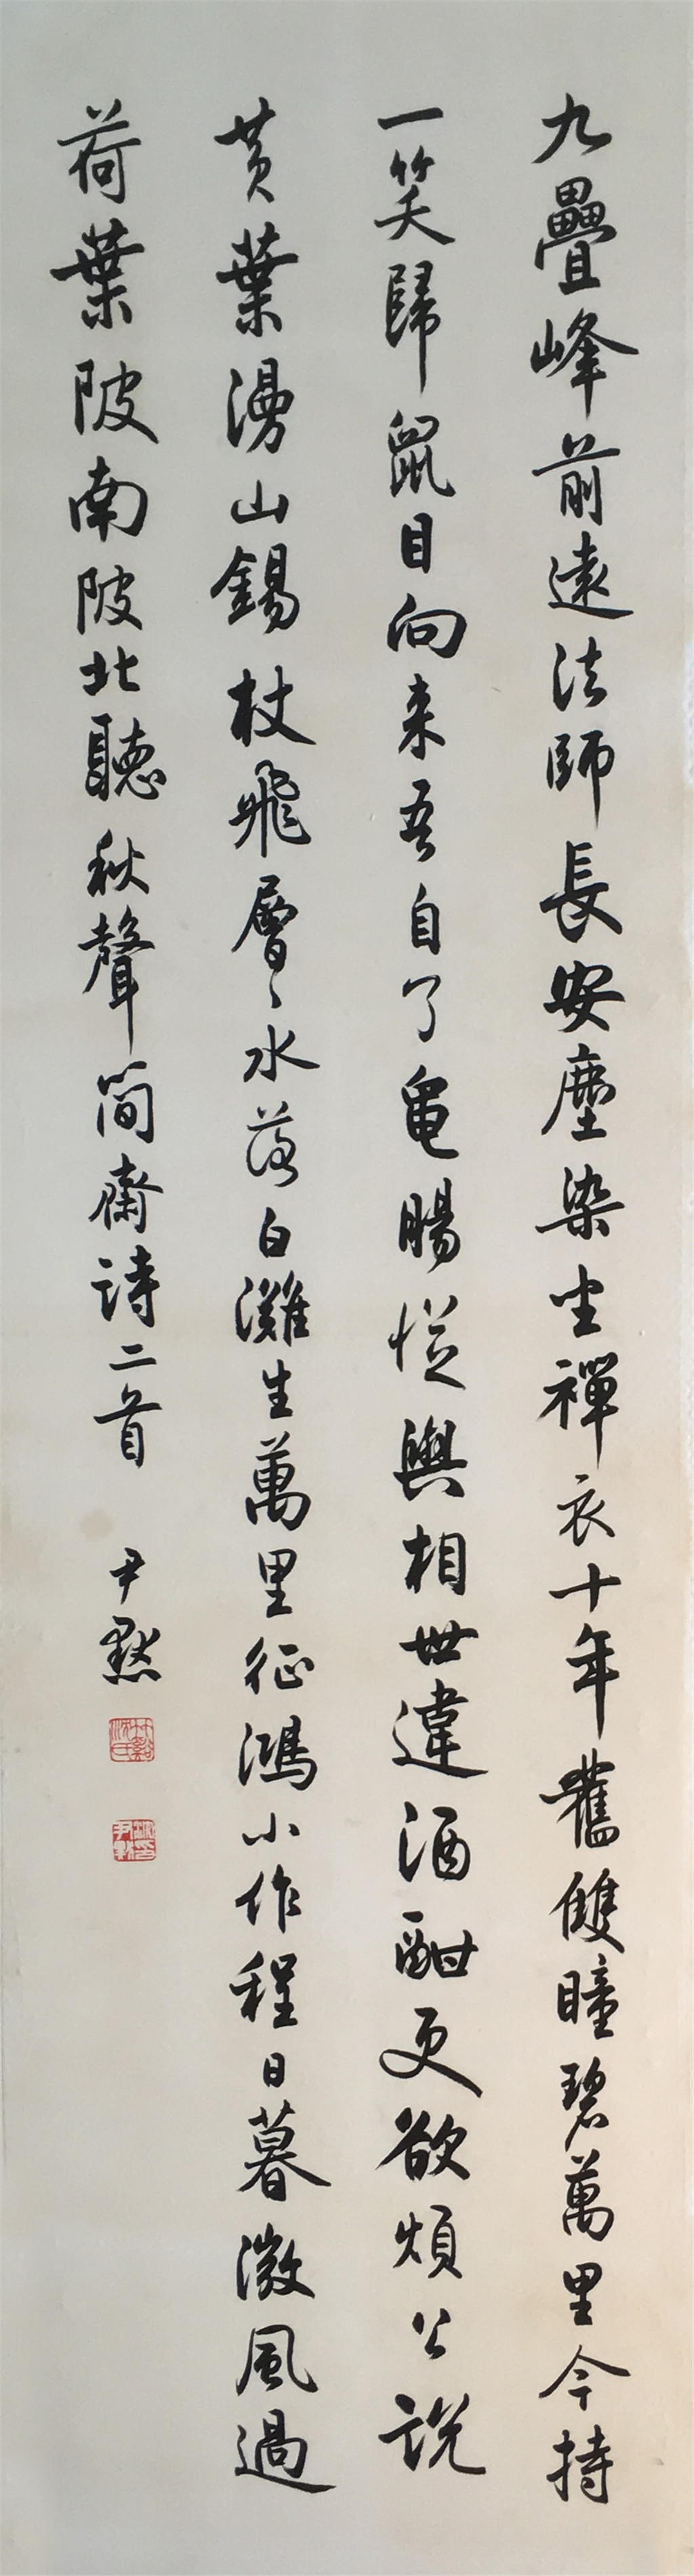 九疊峰前遠法師長安塵染坐禪衣十年舊雙瞳碧萬里今持
一笑歸鼠目向来吾自了龜腸從與相世違酒酣更欲煩公說
黄葉漫山錫杖飛層々水落白灘生萬里征鴻小作程日暮微風過
荷葉陂南陂北聽秋聲簡齋詩二首 尹默
竹谿沈氏